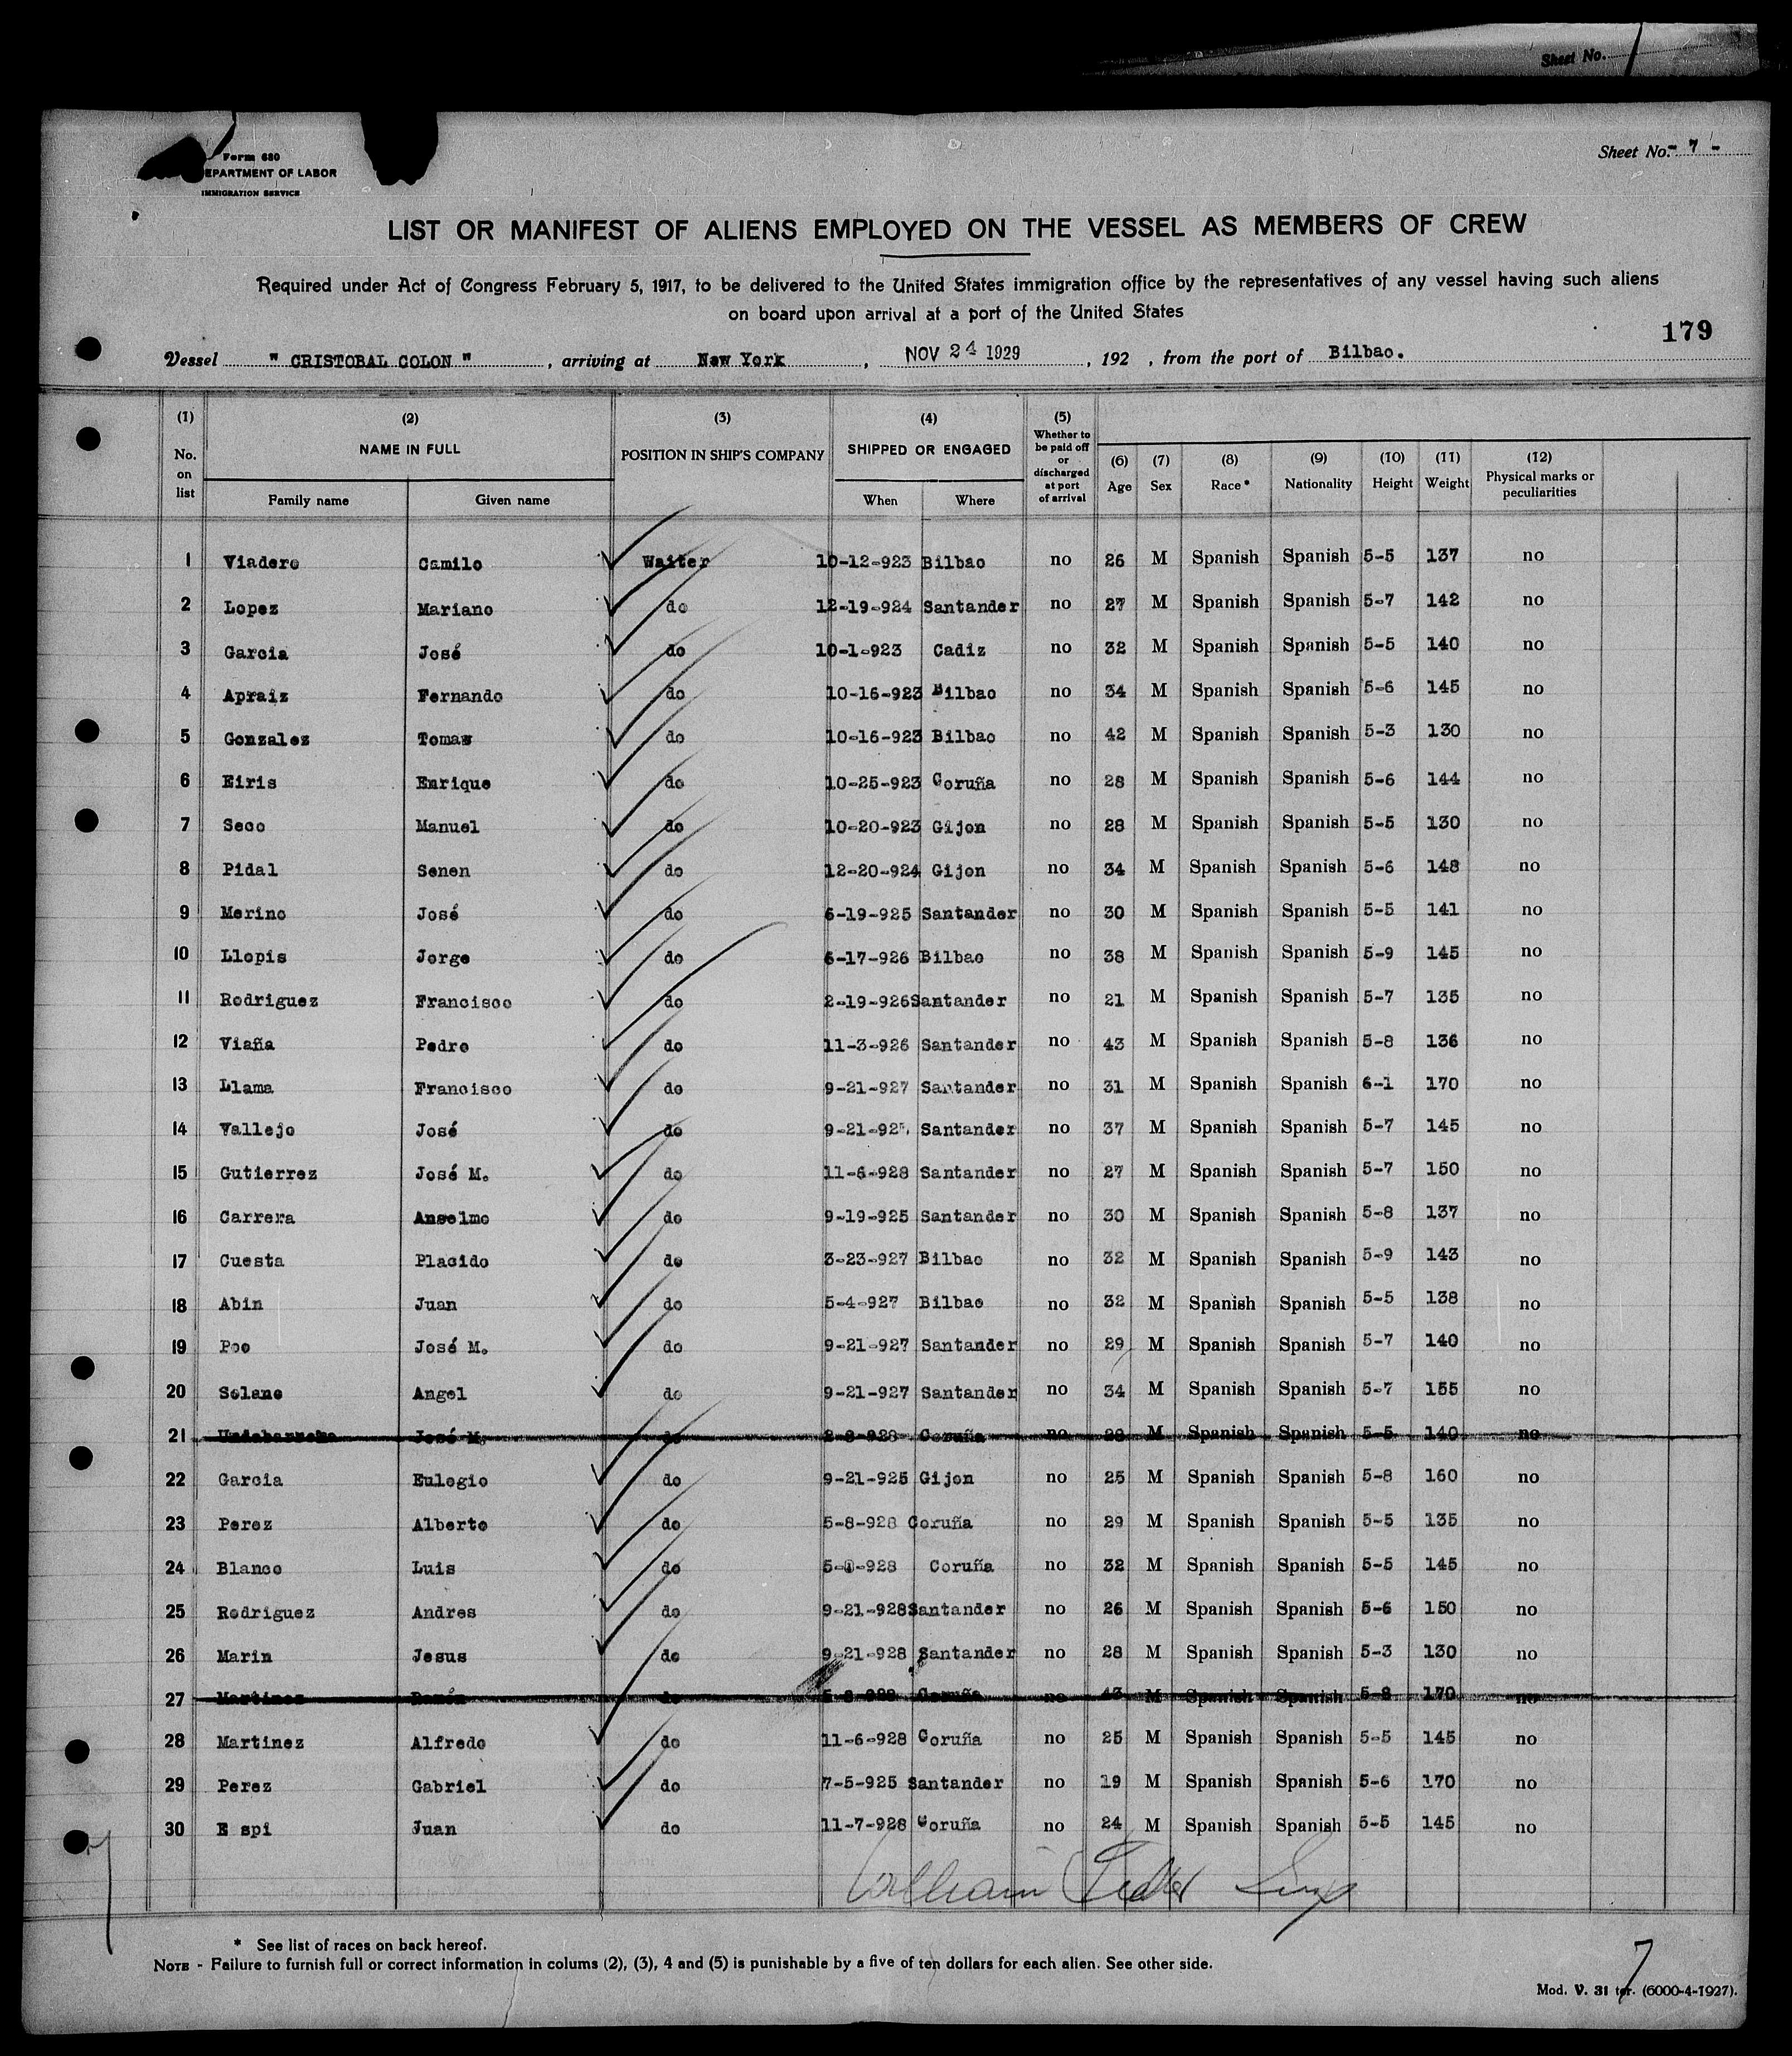 Sheet No.
Form 680
EPARTMENT OF LABOR
IMMIGRATION SERVICE
Sheet No. - 7 -
LIST OR MANIFEST OF ALIENS EMPLOYED ON THE VESSEL AS MEMBERS OF CREW
Required under Act of Congress February 5, 1917, to be delivered to the United States immigration office by the representatives of any vessel having such aliens
on board upon arrival at a port of the United States
179
Vessel " CRISTOBAL COLON ", arriving at New York, NOV 24 1929, 192 , from the port of Bilbao.
(1) No. on list
(2) NAME IN FULL
Family name Given name
(3) POSITION IN SHIP'S COMPANY
(4) SHIPPED OR ENGAGED
When Where
(5) Whether to be paid off or discharged at port of arrival
(6) Age
(7) Sex
(8) Race*
(9) Nationality
(10) Height
(11) Weight
(12) Physical marks or peculiarities
1 Viadero Camilo Waiter 10-12-923 Bilbao no 26 M Spanish Spanish 5-5 137 no
2 Lopez Mariano do 12-19-924 Santander no 27 M Spanish Spanish 5-7 142 no
3 Garcia José do 10-1-923 Cadiz no 32 M Spanish Spanish 5-5 140 no
4 Apraiz Fernando do 10-16-923 Bilbao no 34 M Spanish Spanish 5-6 145 no
5 Gonzalez Tomas do 10-16-923 Bilbao no 42 M Spanish Spanish 5-3 130 no
6 Eiris Enrique do 10-25-923 Coruña no 28 M Spanish Spanish 5-6 144 no
7 Seco Manuel do 10-20-923 Gijon no 28 M Spanish Spanish 5-5 130 no
8 Pidal Senen do 12-20-924 Gijon no 34 M Spanish Spanish 5-6 148 no
9 Merino José do 6-19-925 Santander no 30 M Spanish Spanish 5-5 141 no
10 Llopis Jorge do 6-17-926 Bilbao no 38 M Spanish Spanish 5-9 145 no
11 Rodriguez Francisco do 2-19-926 Santander no 21 M Spanish Spanish 5-7 135 no
12 Viaña Pedro do 11-3-926 Santander no 43 M Spanish Spanish 5-8 136 no
13 Llama Francisco do 9-21-927 Santander no 31 M Spanish Spanish 6-1 170 no
14 Vallejo José do Santander no 37 M Spanish Spanish 5-7 145 no
15 Gutierrez José M. do 11-6-928 Santander no 27 M Spanish Spanish 5-7 150 no
16 Carrera Anselmo do 9-19-925 Santander no 30 M Spanish Spanish 5-8 137 no
17 Cuesta Placido do 3-23-927 Bilbao no 32 M Spanish Spanish 5-9 143 no
18 Abin Juan do 5-4-927 Bilbao no 32 M Spanish Spanish 5-5 138 no
19 Poo José M. do 9-21-927 Santander no 29 M Spanish Spanish 5-7 140 no
20 Solano Angel do 9-21-927 Santander no 34 M Spanish Spanish 5-7 155 no
21 José M. do Coruña no M Spanish Spanish 5-5 140 no
22 Garcia Eulogio do 9-21-925 Gijon no 25 M Spanish Spanish 5-8 160 no
23 Perez Alberto do 5-8-928 Coruña no 29 M Spanish Spanish 5-5 135 no
24 Blanco Luis do Coruña no 32 M Spanish Spanish 5-5 145 no
25 Rodriguez Andres do 9-21-928 Santander no 26 M Spanish Spanish 5-6 150 no
26 Marin Jesus do 9-21-928 Santander no 28 M Spanish Spanish 5-3 130 no
27 Martinez Ramón do Coruña no 43 M Spanish Spanish 5-8 170 no
28 Martinez Alfredo do 11-6-928 Coruña no 25 M Spanish Spanish 5-5 145 no
29 Perez Gabriel do 7-5-925 Santander no 19 M Spanish Spanish 5-6 170 no
30 E spi Juan do 11-7-928 Coruña no 24 M Spanish Spanish 5-5 145 no
William
* See list of races on back hereof.
NOTE - Failure to furnish full or correct information in colums (2), (3), 4 and (5) is punishable by a five of ten dollars for each alien. See other side.
7
Mod. V. 31 ter. (6000-4-1927).